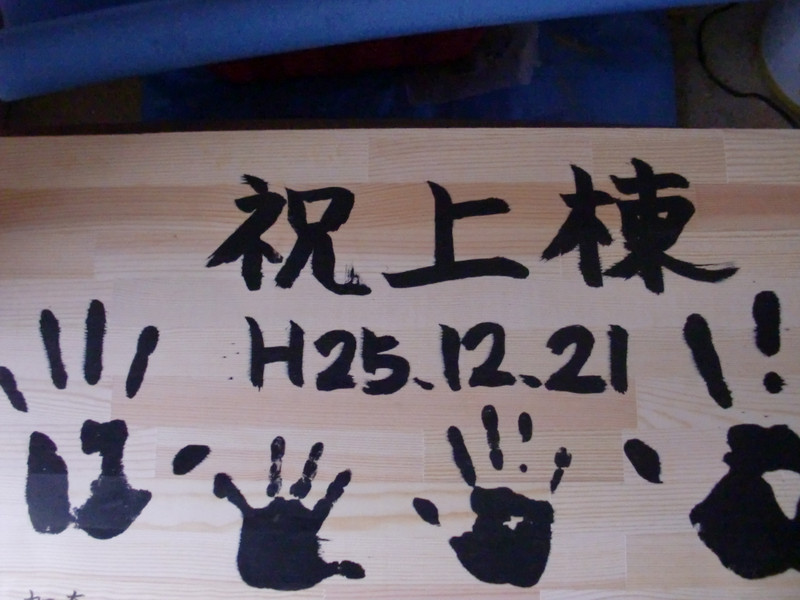 祝上棟
H25.12.21